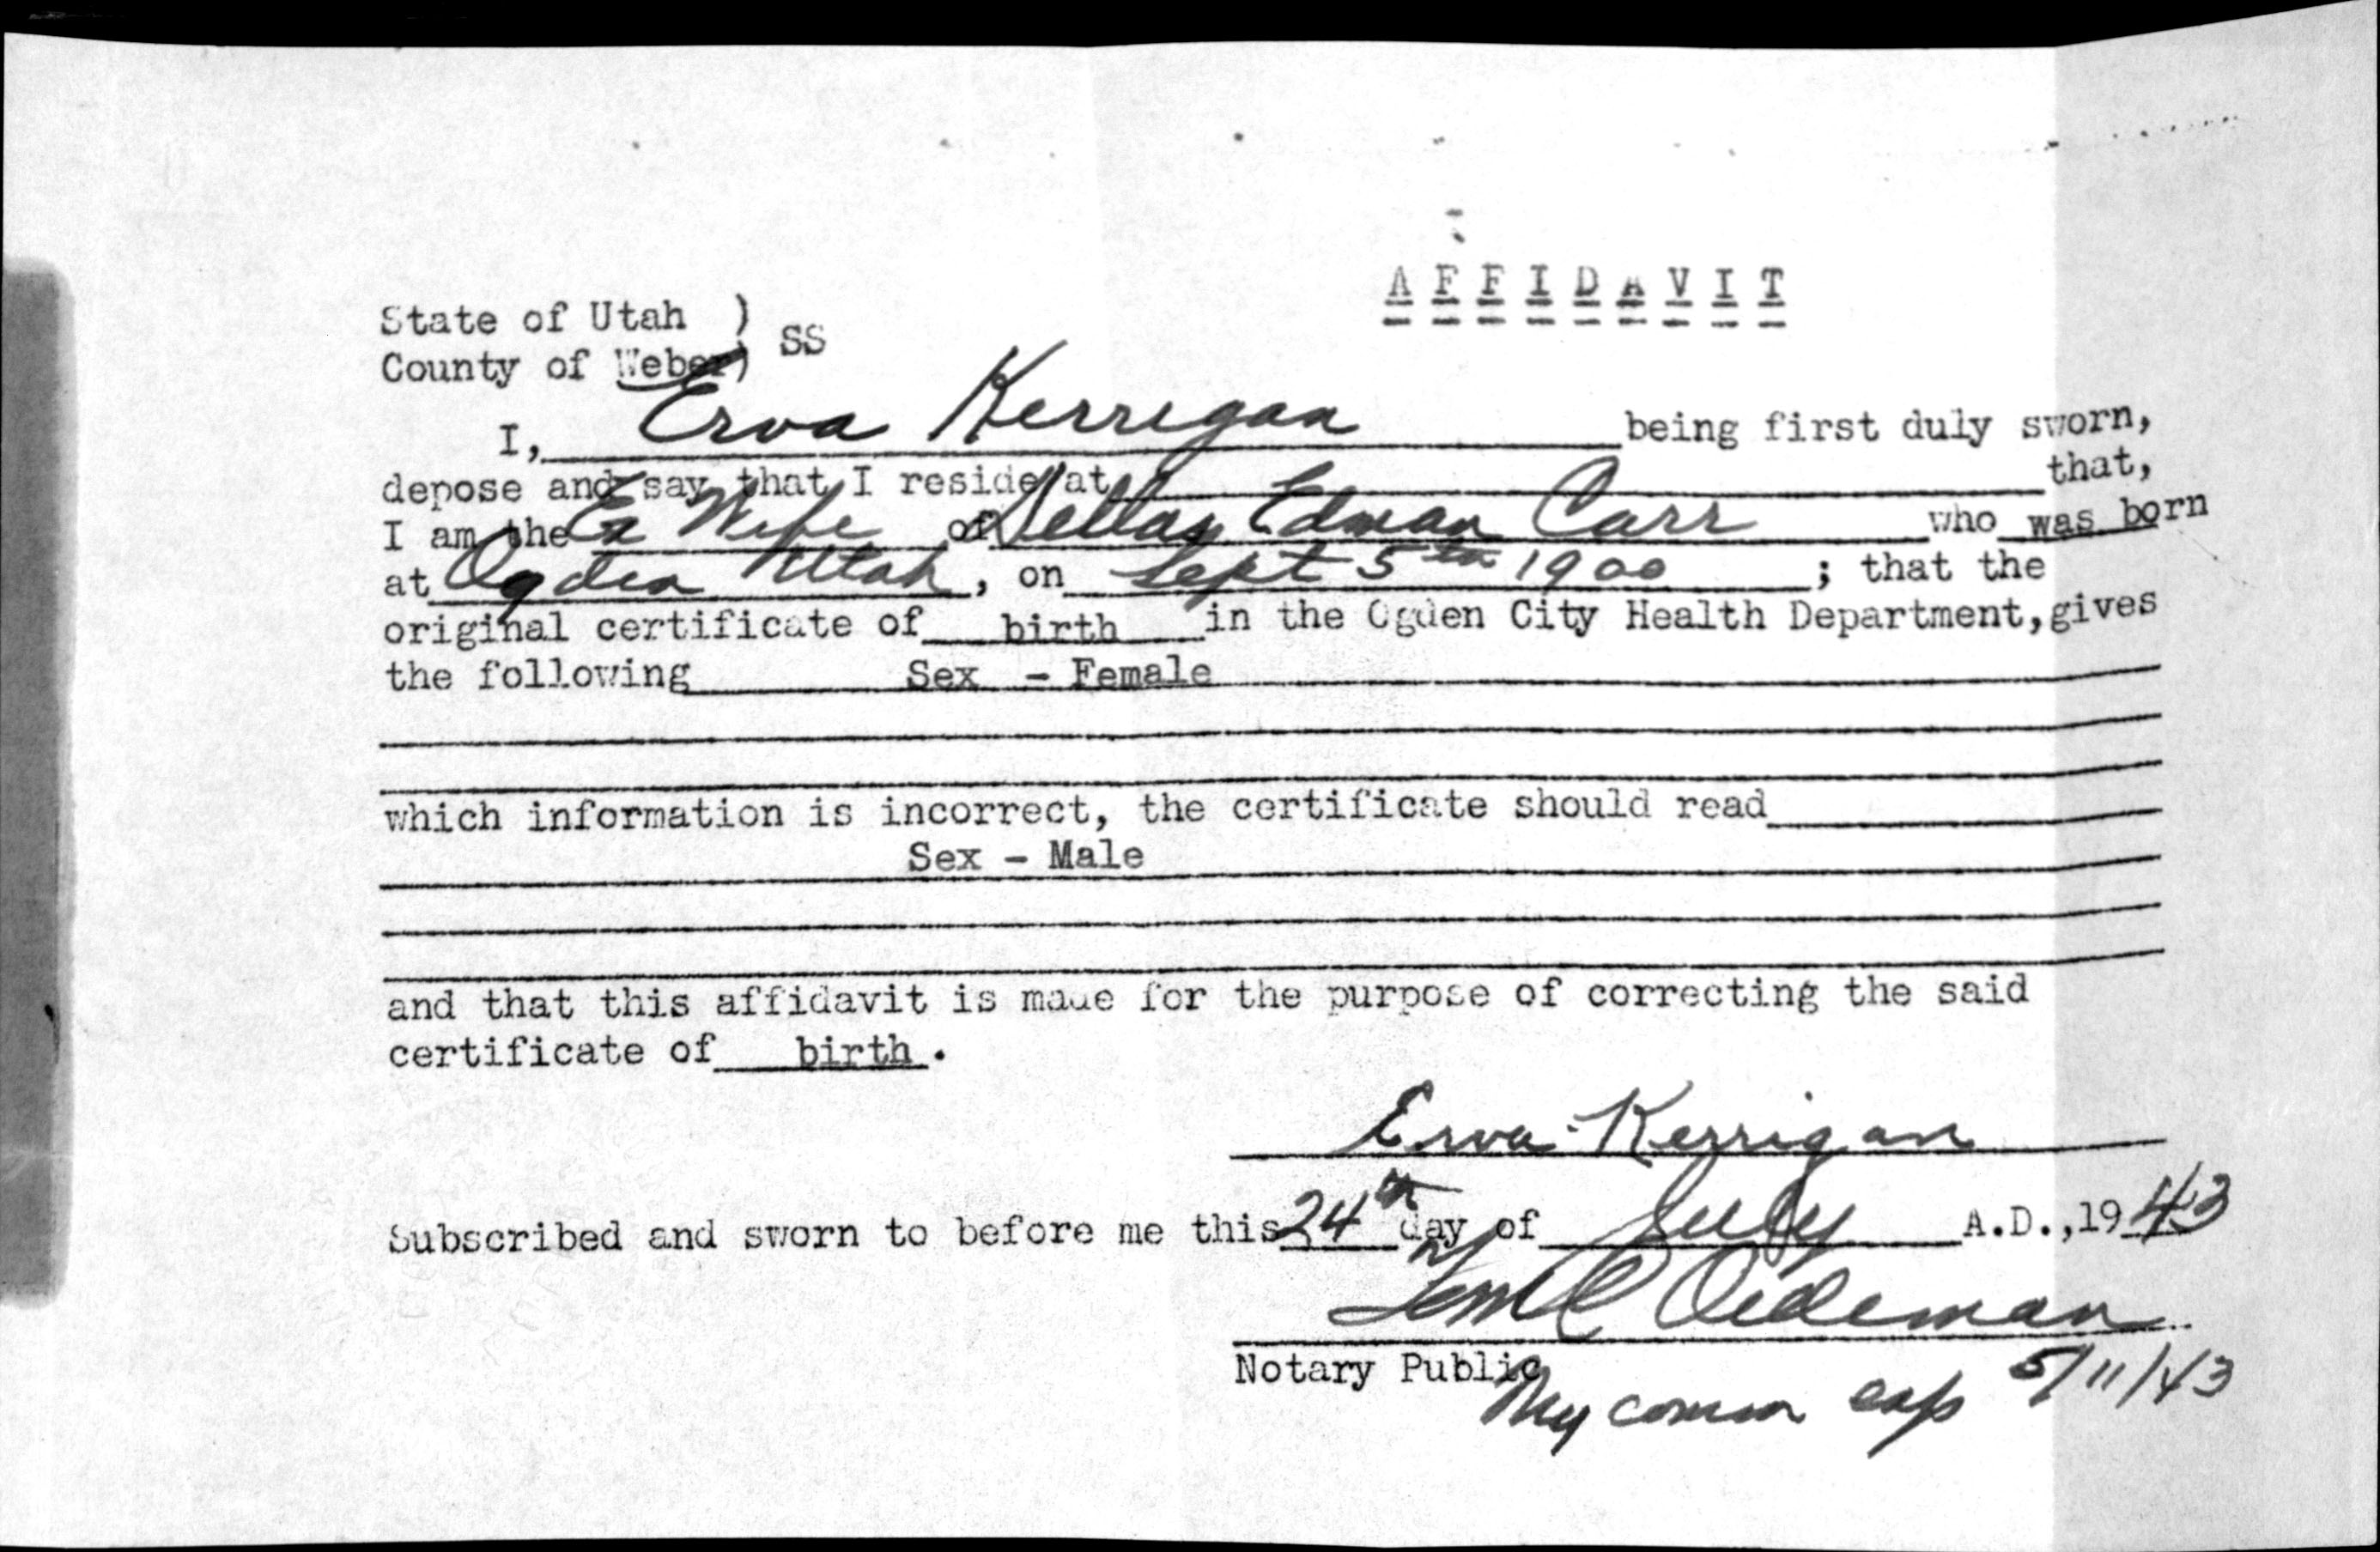 AFFIDAVIT
State of Utah )
County of Weber) SS
I, Erva Kerrigan being first duly sworn,
depose and say that I reside at that,
I am the Ex Wife of Dellas Edman Carr who was born
at Ogden Utah, on Sept 5th 1900 ; that the
original certificate of birth in the Ogden City Health Department, gives
the following Sex - Female
which information is incorrect, the certificate should read
Sex - Male
and that this affidavit is made for the purpose of correcting the said
certificate of birth.
Erva Kerrigan
Subscribed and sworn to before me this 24th day of July A.D.,1943
Notary Public
My comm exp 5/11/43